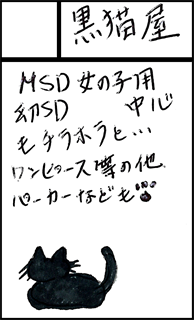 黒猫屋
MSD女の子用
幼SD 中心
もチラホラと…
ワンピース等の他
パーカーなども